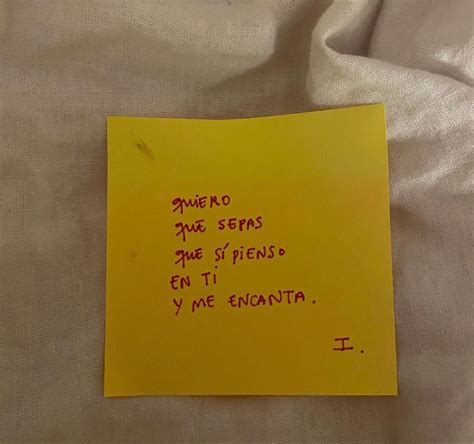 QUIERO
QUE SEPAS
QUE SÍ PIENSO
EN TI
Y ME ENCANTA.
I.